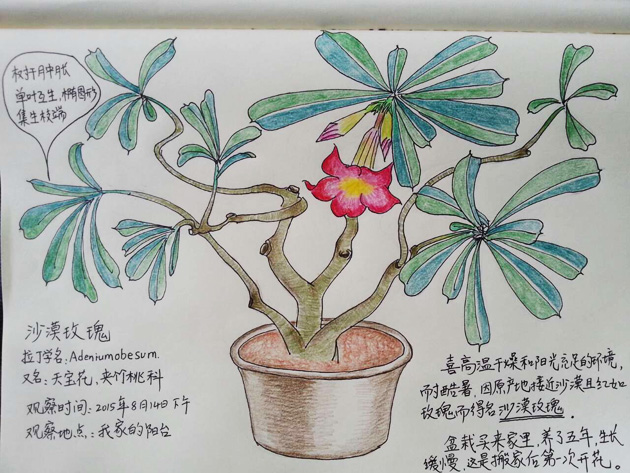 枝干肿胀
单叶互生,椭圆形
集生枝端
沙漠玫瑰
拉丁学名:Adeniumobesum.
又名:天宝花,夹竹桃科
观察时间:2015年8月14日下午
观察地点:我家的阳台
喜高温干燥和阳光充足的环境,
耐酷暑,因原产地接近沙漠且红如
玫瑰而得名沙漠玫瑰。
盆栽买来家里,养了五年,生长
缓慢,这是搬家后第一次开花。